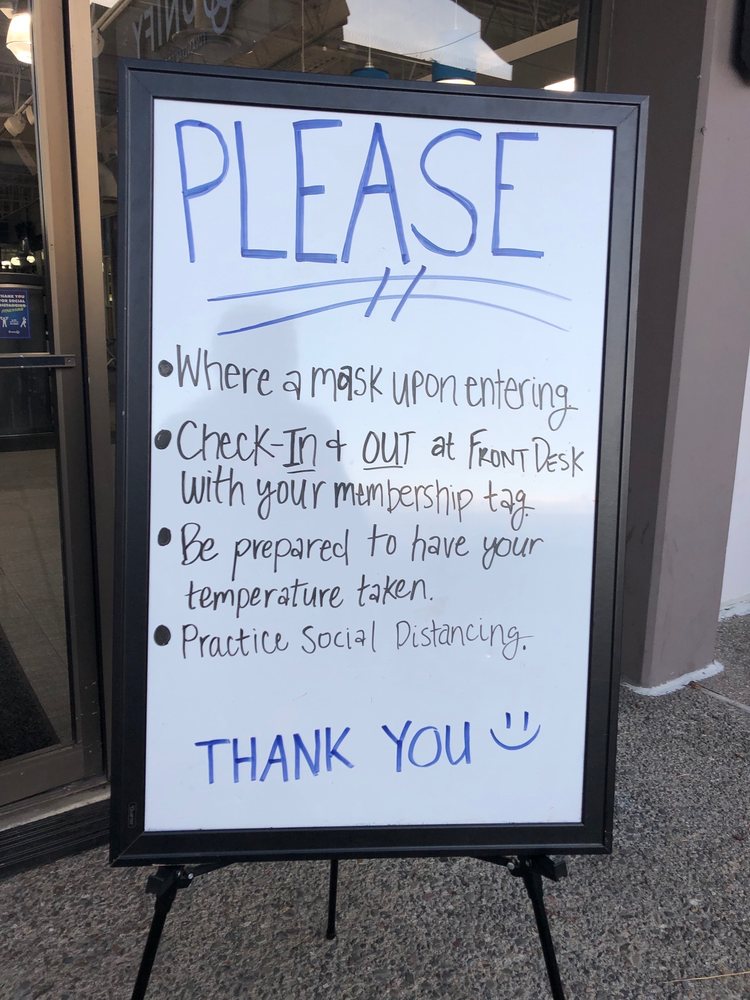 UNIFY
PLEASE
•Where a mask upon entering
•Check-In & OUT at FRONT DESK
with your membership tag
•Be prepared to have your
temperature taken.
•Practice Social Distancing.
THANK YOU
THANK YOU
FOR SOCIAL
DISTANCING